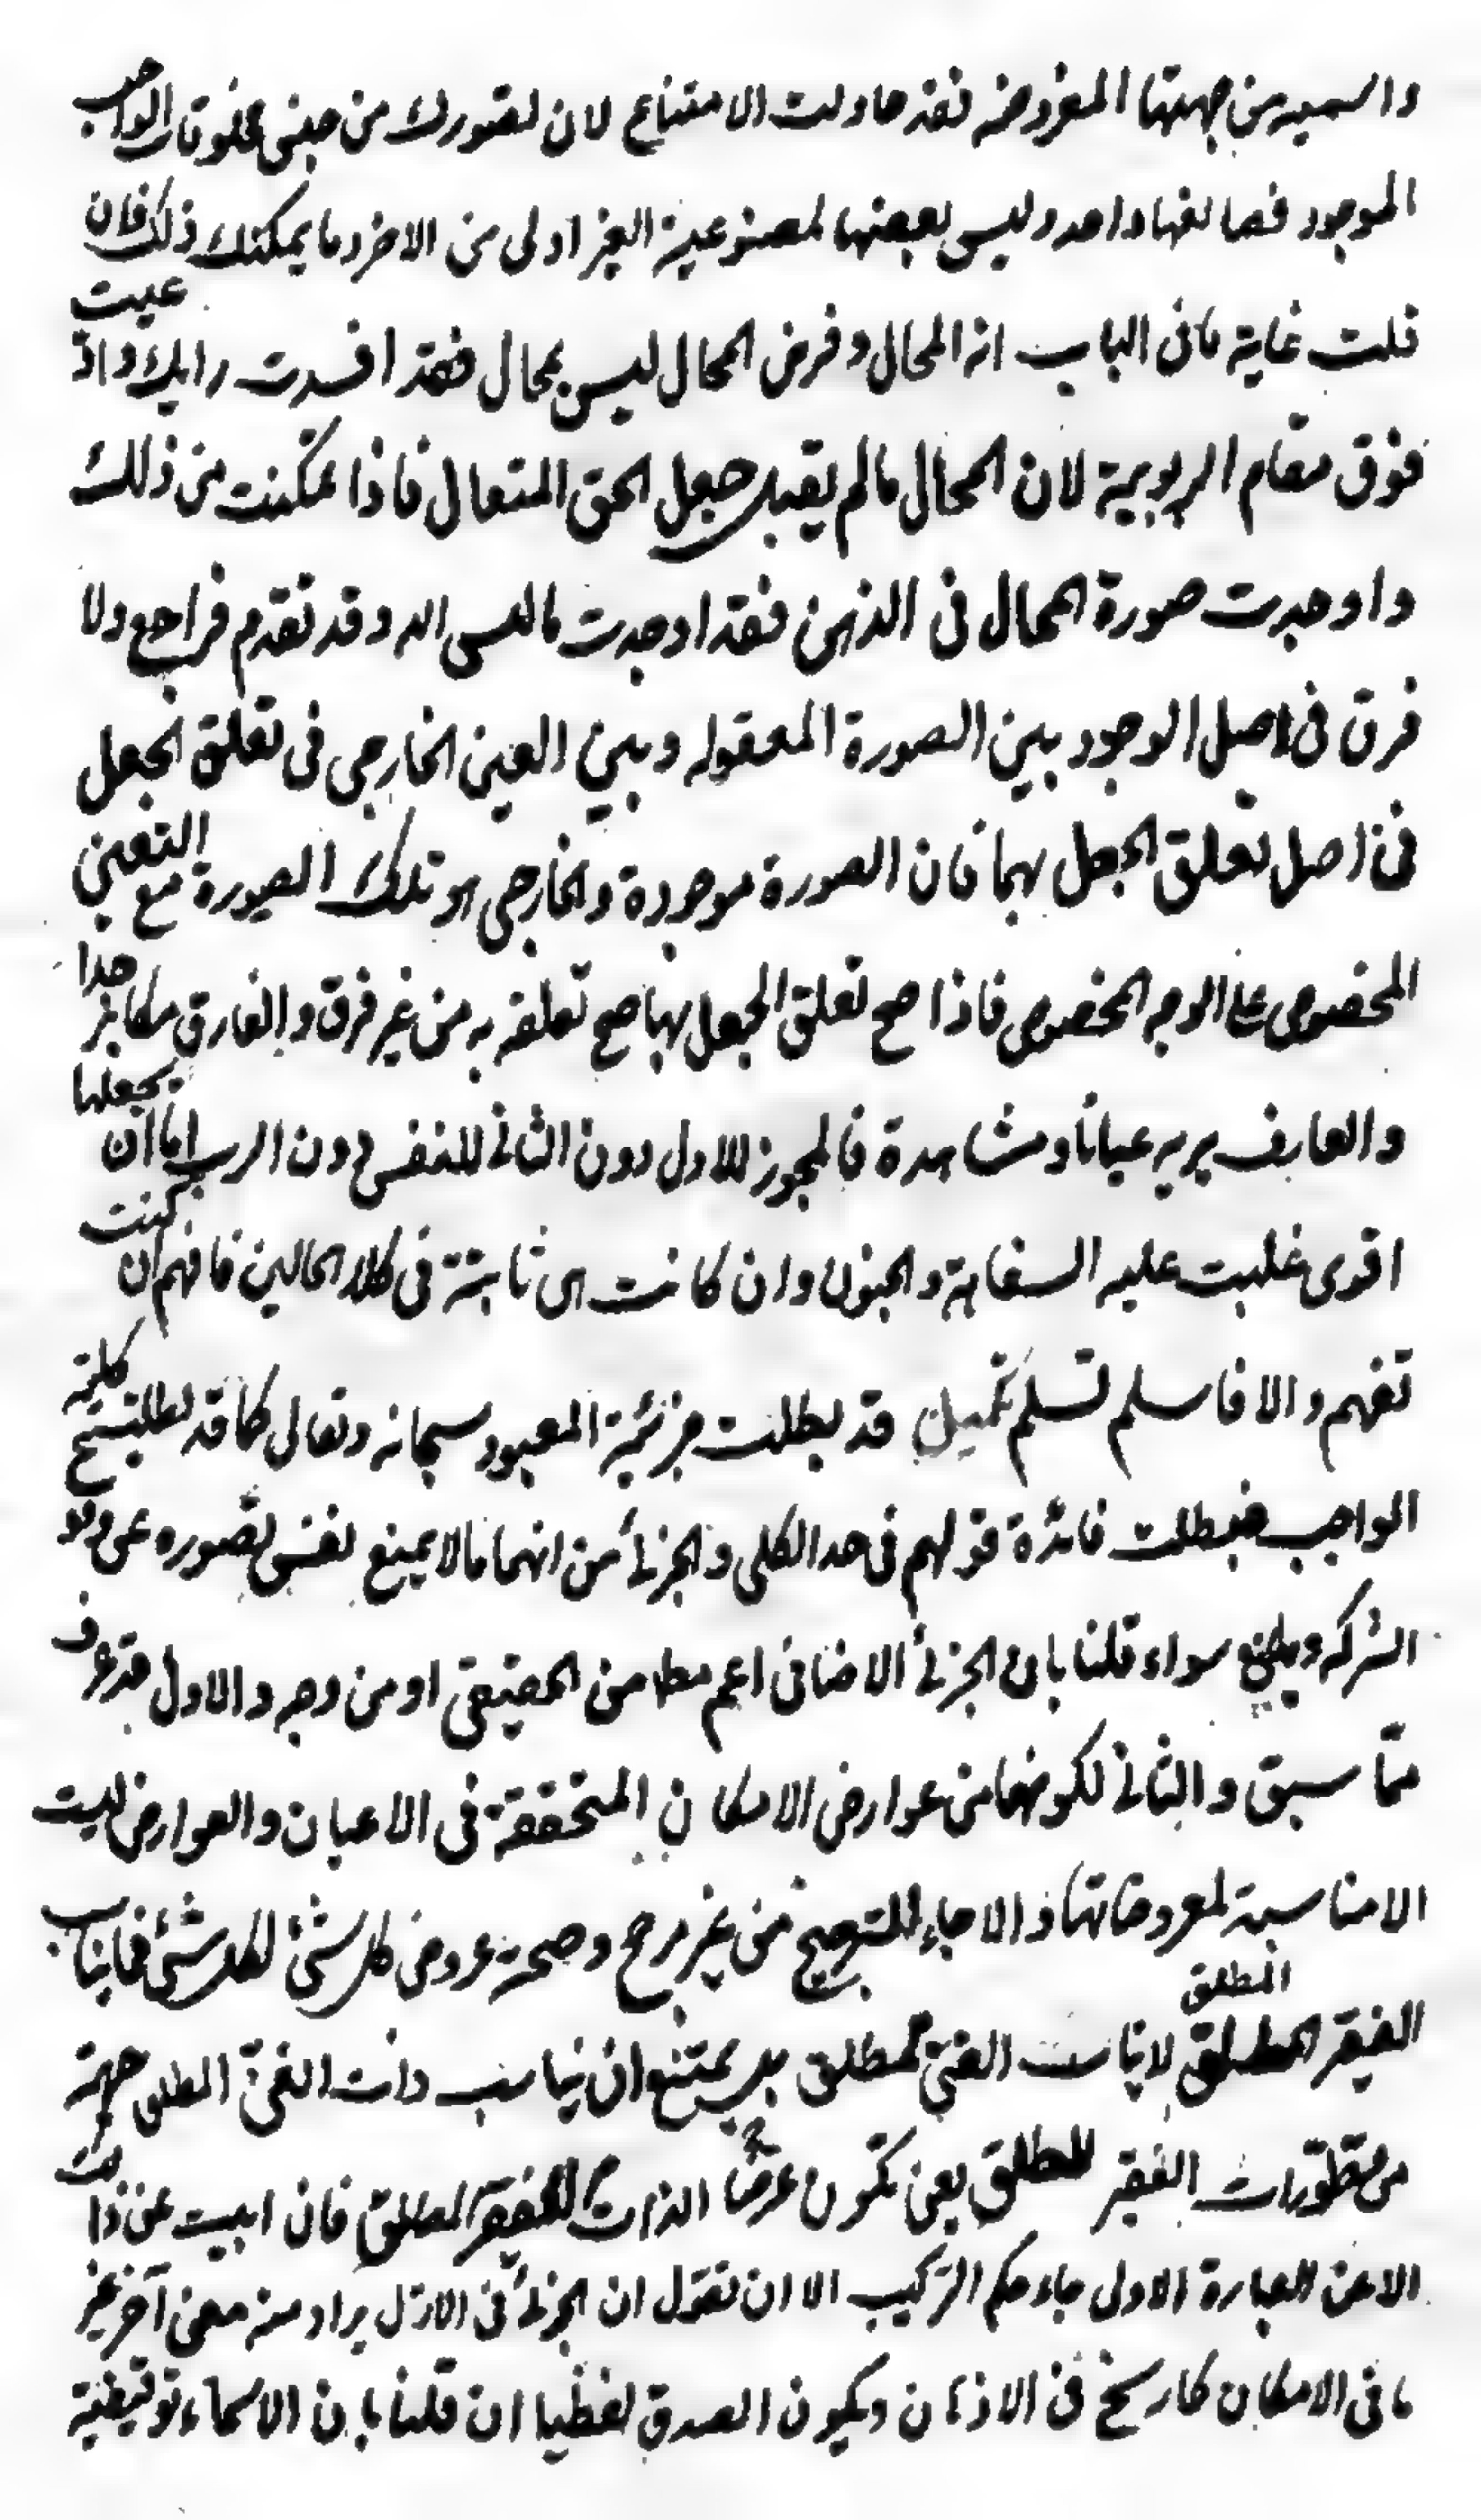 والسير من جهتها المفروضه فقد حاولت الامتناع لان تصورك من جنس مخلوقات الواجب
الموجود فصانعها واحد وليس بعضها لمصنوعية الغير اولى من الاخر وما يمكنك ذلك فان
قلت غاية ما فى الباب انه المحال وفرض المحال ليس بمحال فقد افسدت رايك واذ عيت
فوق مقام الربوبية لان المحال ما لم يقبل جعل الحق المتعال فاذا تمكنت من ذلك
واوجدت صورة المحال فى الذهن فقد اوجدت ما ليس اله وقد تقدم فراجع ولا
فرق فى اصل الوجود بين الصورة المعقوله وبين العين الخارجى فى تعلق الجعل
فى اصل تعلق الجعل بهما فان الصورة موجودة والخارجى هو تلك الصورة مع التعين
المخصوص على الوجه المخصوص فاذا صح تعلق الجعل بها صح تعلقه به من غير فرق والفارق مكابر جدا
والعارف يريه عيانا ومشاهدة فالمجوز للاول دون الثانى للنفس دون الرب اما ان يجعلها
اقوى غلبت عليه السفاهة والجنون وان كانت هى ثابتة فى كلا الحالين فافهم ان كنت
تفهم والا فاسلم تسلم تكميل قد بطلت جزئية المعبود سبحانه وتعالى كما قد بطلت كلية
الواجب فبطلت فائدة قولهم فى حد الكلى والجزئى من انهما ما لا يمنع نفس تصوره عن وقوع
الشركه ويمنع سواء قلنا بان الجزئى الاضافى اعم مطا من الحقيقى او من وجه والاول قد عرف
ممّا سبق والثانى لكونهما من عوارض الامكان المتحققة فى الاعيان والعوارض ليست
الا مناسبة لمعروضاتها والا جاء الترجيح من غير مرجح وصحة عروض كل شئ لكل شئ فما يناسب
الفقير المطلق لا يناسب الغنىّ المطلق بل يمتنع ان يناسب ذات الغنىّ المطلق جهة
من تطورات الفقير المطلق يعنى تكون عرضا الذات الفقير المطلق فان ابيت عن ذلك
الا عن العبارة الاولى جاء حكم التركيب الا ان تقول ان الجزئى فى الازل يراد منه معنى آخر غير
ما فى الامكان كما رسخ فى الاذهان ويكون الصدق لفظيا ان قلنا بان الاسماء توقيفية